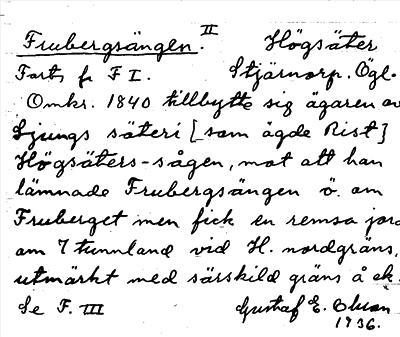 Frubergsängen. II Högsäter
Forts. fr. F I. Stjärnorp. Ögl.
Omkr. 1840 tillbytte sig ägaren av
Ljungs säteri [som ägde Rist]
Högsäters-sågen, mot att han
lämnade Frubergsängen ö. om
Fruberget men fick en remsa jord
om 7 tunnland vid H. nordgräns,
utmärkt med särskild gräns å ek.
Se F. III Gustaf E. Olsson
1936.